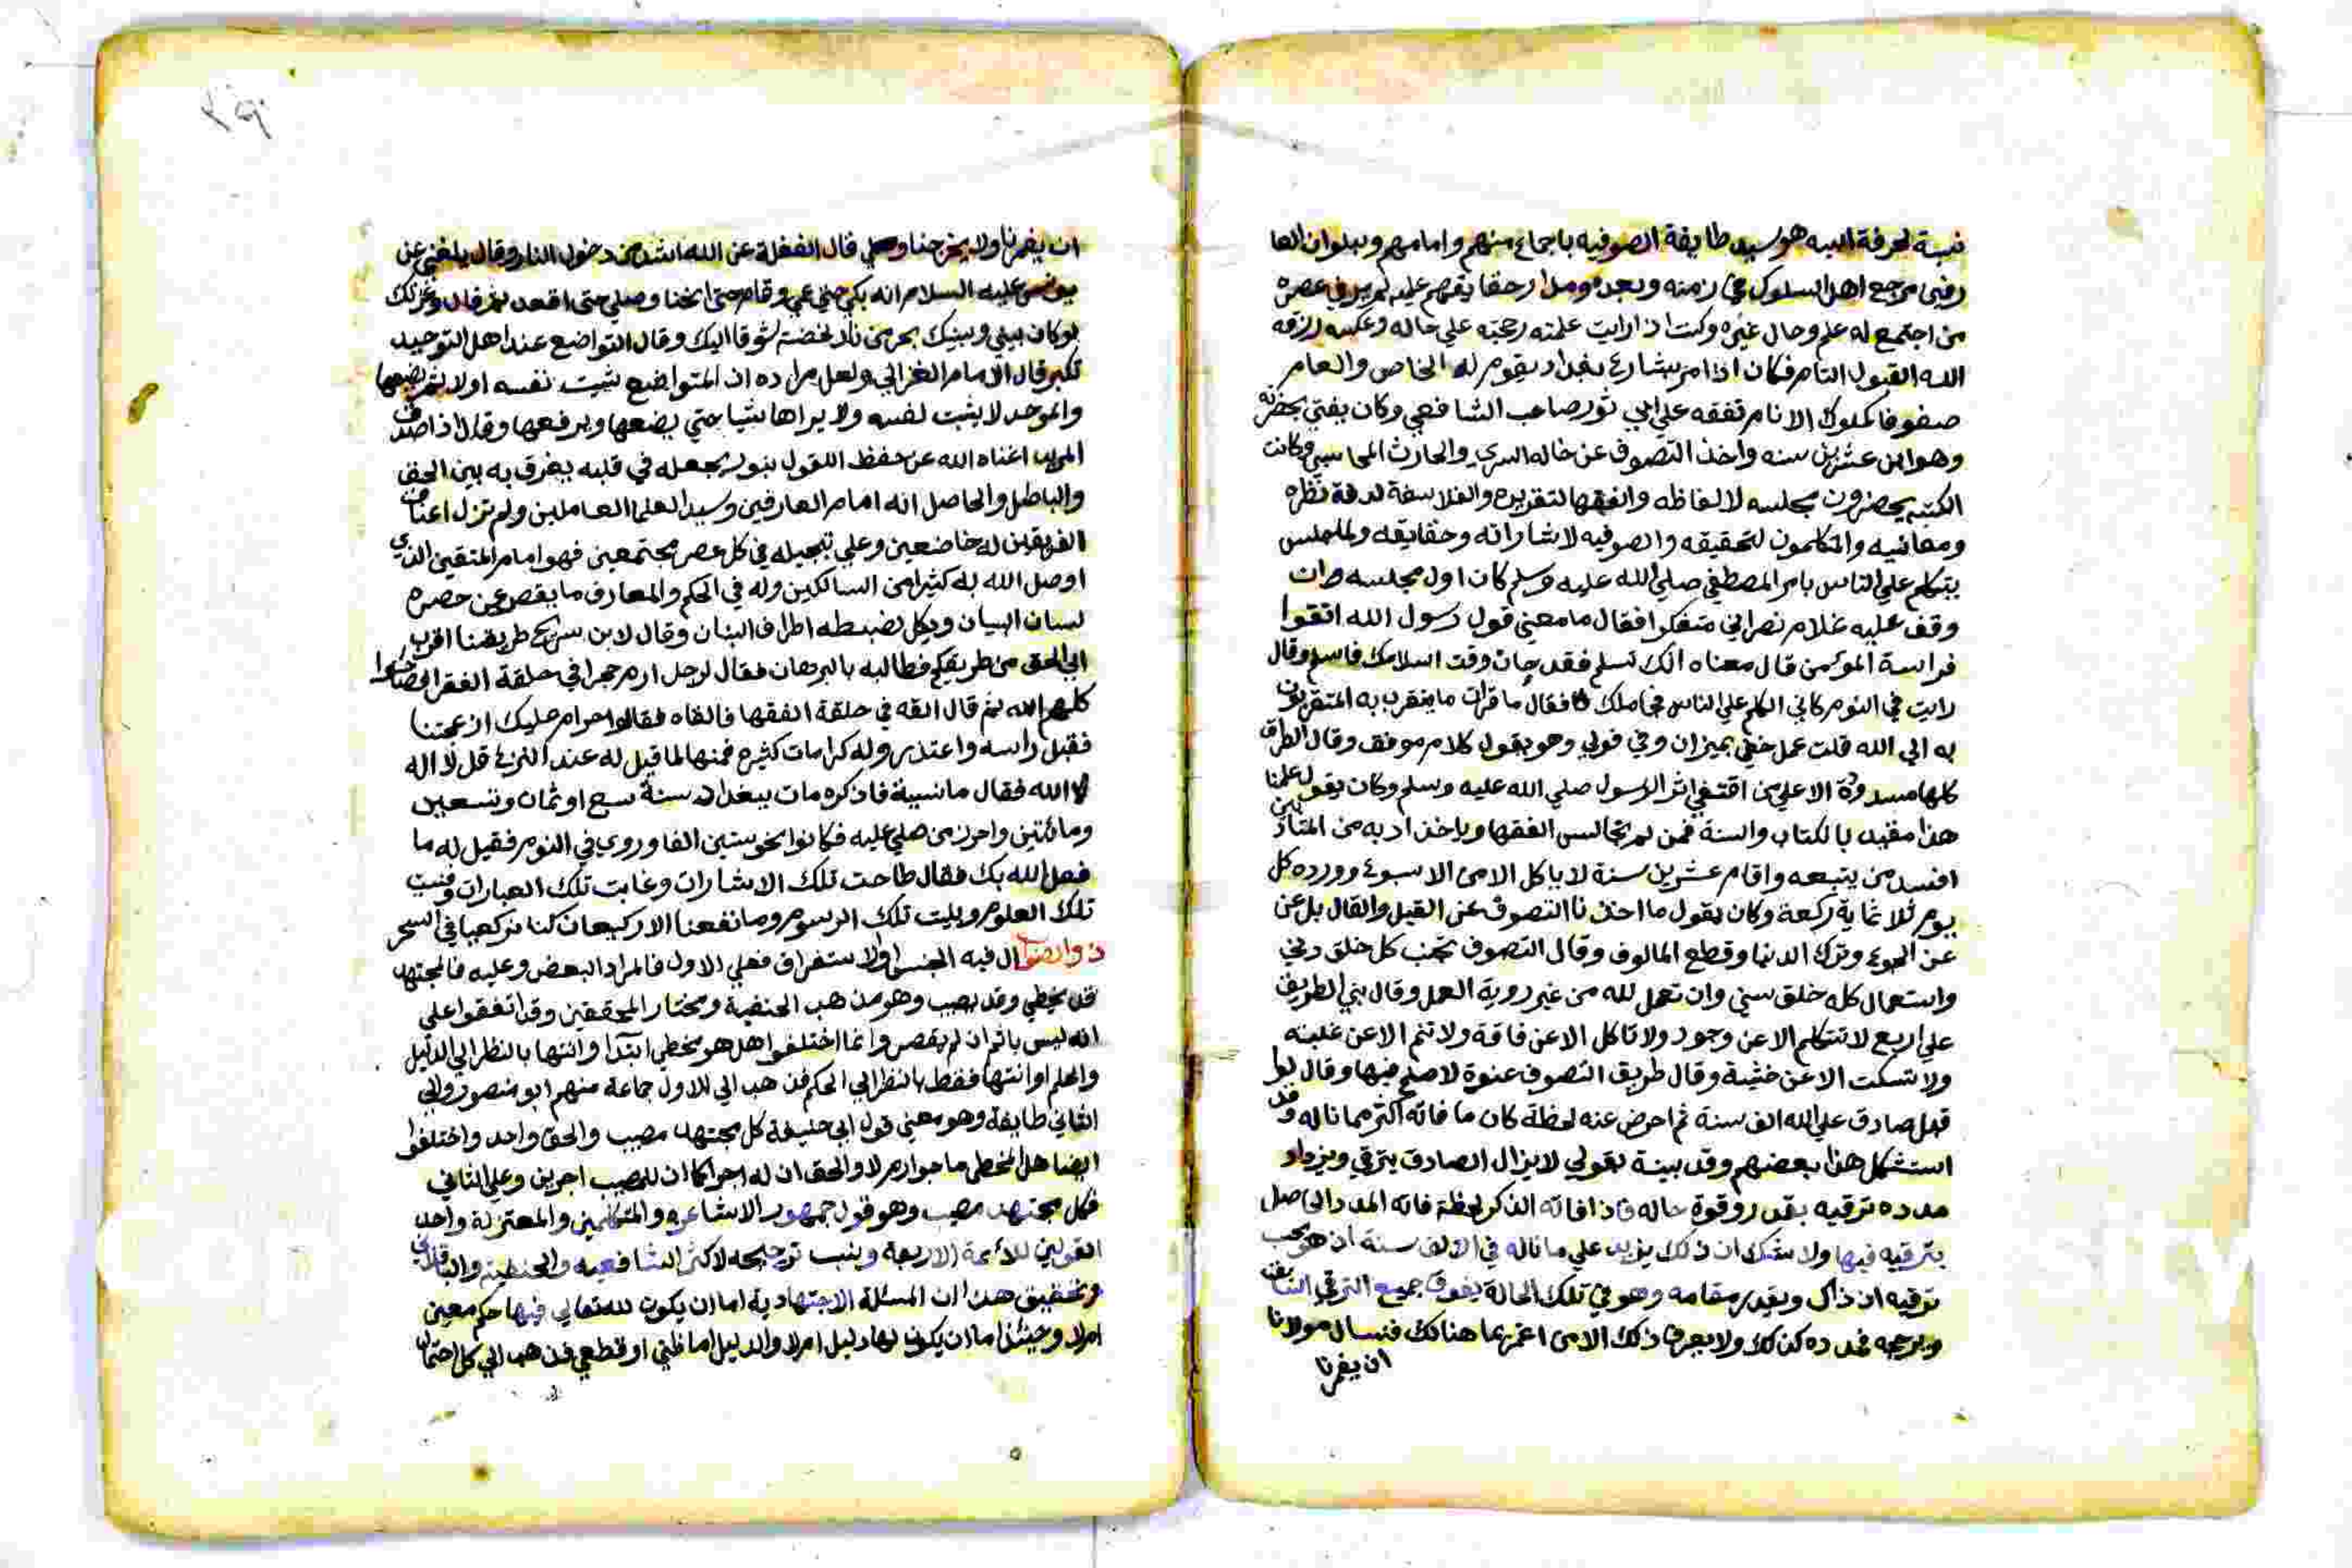 نسبة لحرفة ابيه هو سيد طايفة الصوفيه باجماع منهم وامامهم وببلوان العا
رفين مرجع اهل السلوك في زمنه وبعده ومدار حقايقهم عليه لم ير في عصره
من اجتمع له علم وحال غيره وكنت اذا رايت علمته رجحته على حاله وعكسه رزقه
الله القبول التام فكان اذا مر بشارع بغداد يقوم له الخاص والعام
صفوفا كملوك الانام تفقه علي ابي ثور صاحب الشافعي وكان يفتي بحضرته
وهو ابن عشرين سنه واخذ التصوف عن خاله السري والحارث المحاسبي وكانت
الكتبه يحضرون مجلسه لالفاظه والفقها لتقريره والفلاسفة لدقة نظره
ومعانيه والمتكلمون لتحقيقه والصوفيه لاشاراته وحقايقه ولما جلس
يتكلم علي الناس بامر المصطفي صلي الله عليه وسلم كان اول مجلسه ان
وقف عليه غلام نصراني متنكرا فقال ما معني قول رسول الله اتقوا
فراسة المؤمن قال معناه انك تسلم فقد حان وقت اسلامك فاسلم وقال
رايت في النوم كاني اتكلم علي الناس فجا ملك فقال ما قرات ما يتقرب به المتقربون
به الي الله قلت عمل خفي بميزان وفي فولي وهو يقول كلام موفق وقال الطرق
كلها مسدودة الا علي من اقتفي اثر الرسول صلي الله عليه وسلم وكان يقول علمنا
هذا مقيد بالكتاب والسنة فمن لم يجالس الفقها وياخذ ادبه من المتادبين
افسد من يتبعه واقام عشرين سنة لا ياكل الا من الاسبوع وورده كل
يوم ثلاثماية ركعة وكان يقول ما اخذنا التصوف عن القيل والقال بل عن
عن الجوع وترك الدنيا وقطع المالوف وقال التصوف تجنب كل خلق دني
واستعمال كل خلق سني وان تعمل لله من غير روية العمل وقال بني الطريق
علي اربع لا تتكلم الا عن وجود ولا تاكل الا عن فاقة ولا تنم الا عن غلبته
ولا تسكت الا عن خشية وقال طريق التصوف عنوة لا صلح فيها وقال لو ا
قبل صادق علي الله الف سنة ثم اعرض عنه لحظة كان ما فاته اكثر مما ناله وقد
استشكل هذا بعضهم وقد بينة بقولي لا يزال الصادق يترقي ويزداد
مدده ترقيه بقدر وقوة حاله فاذا فاته الذكر لحظة فاته المدد الحاصل
بترقيه فيها ولا شك ان ذلك يزيد علي ما ناله في الالف سنة اذ هو بحسب
ترقيه اذ ذاك وبقدر مقامه وهو في تلك الحالة يفوق جميع الترقي السابق
وبرجه فمدده كذلك ولا يعرف ذلك الا من اعتز بما هنالك فنسال مولانا
ان يغمرنا
ان يغمرنا ولا يخرجنا قال الغفلة عن الله اشد من دخول النار وقال بلغني عن
يونس عليه السلام انه بكي حتي عمي وقام حتي انحنا وصلي حتي اقعد ثم قال وعزتك
لو كان بيني وبينك بحر من نار لخضته شوقا اليك وقال التواضع عند اهل التوحيد
تكبر قال الامام الغزالي ولعل مراده ان المتواضع يثبت نفسه اولا ثم يضعها
والموحد لا يثبت نفسه ولا يراها شيا حتي يضعها ويرفعها وقال اذا صدق
المريد اغناه الله عن حفظ النقول بنور يجعله في قلبه يفرق به بين الحق
والباطل والحاصل انه امام العارفين وسيد العلما العاملين ولم تزل اعناق
الفريقين له خاضعين وعلي تبجيله في كل عصر مجتمعين فهو امام المتقين الذي
اوصل الله به كثيرا من السالكين وله في الحكم والمعارف ما يقصر عن حصره
لسان البيان ويكل لضبطه اطراف البنان وقال لابن سريج طريقنا اقرب
الي الحق من طريقكم فطالبه بالبرهان فقال لرجل ارم حجرا في حلقة الفقرا فصاحوا
كلهم الله ثم قال القه في حلقة الفقها فالقاه فقالوا حرام عليك ازعجتنا
فقبل راسه واعتذر وله كرامات كثيره فمنها لما قيل له عند النزع قل لا اله
الا الله فقال ما نسيته فاذكره مات ببغداد سنة سبع او ثمان وتسعين
ومائتين وحزر من صلي عليه فكانوا نحو ستين الفا وروي في النوم فقيل له ما
فعل الله بك فقال طاحت تلك الاشارات وغابت تلك العبارات وفنيت
تلك العلوم وبليت تلك الرسوم وما نفعنا الا ركيعات كنا نركعها في السحر
ذو الصواب ال فيه للجنس او للاستغراق فعلي الاول فالمراد البعض وعليه فالمجتهد
قد يخطي وقد يصيب وهو مذهب الحنفية ومختار المحققين وقد اتفقوا علي
انه ليس باثم ان لم يقصر وانما اختلفوا هل هو مخطي ابتدآ وانتها بالنظر الي الدليل
والحكم او انتها فقط بالنظر الي الحكم فذهب الي الاول جماعة منهم ابو منصور والي
الثاني طايفة وهو معني قول ابي حنيفة كل مجتهد مصيب والحق واحد واختلفوا
ايضا هل المخطي ماجور ام لا والحق ان له اجرا كما ان للمصيب اجرين وعلي الثاني
فكل مجتهد مصيب وهو قول جمهور الاشاعره والمتكلمين والمعتزلة واحد
القولين للائمة الاربعة وينسب ترجيحه لاكثر الشافعيه والحنفية والباقلاني
وتحقيق هذا ان المسئلة الاجتهادية اما ان يكون لله تعالي فيها حكم معين
ام لا وحينئذ اما ان يكون لها دليل ام لا والدليل اما ظني او قطعي فذهب الي كل احتمال